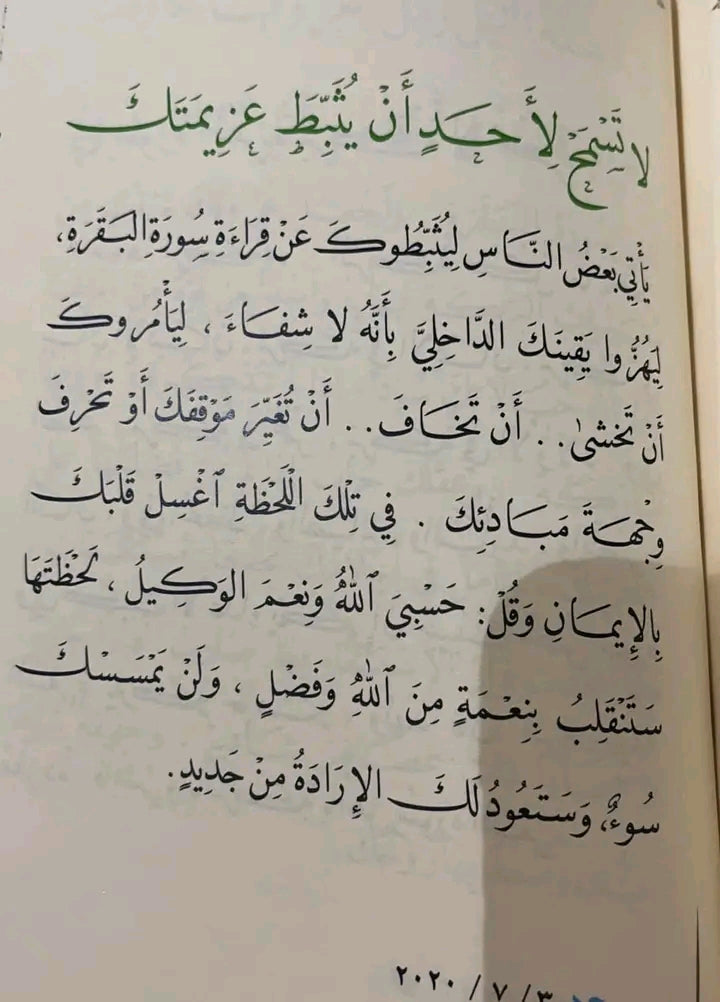 لا تَسْمَحْ لِأَحَدٍ أَنْ يُثَبِّطَ عَزِيمَتَكَ
يَأْتِي بَعْضُ النَّاسِ لِيُثَبِّطُوكَ عَنْ قِرَاءَةِ سُورَةِ البَقَرَةِ،
لِيَهُزُّوا يَقِينَكَ الدَّاخِلِيَّ بِأَنَّهُ لا شِفَاءَ، لِيَأْمُروكَ
أَنْ تَخْشىٰ.. أَنْ تَخَافَ.. أَنْ تُغَيِّرَ مَوْقِفَكَ أَوْ تَحْرِفَ
وِجْهَةَ مَبَادِئِكَ. فِي تِلْكَ اللَّحْظَةِ ٱغْسِلْ قَلْبَكَ
بِالإِيمَانِ وَقُلْ: حَسْبِيَ ٱللهُ وَنِعْمَ الوَكِيلُ، لَحْظَتَهَا
سَتَنْقَلِبُ بِنِعْمَةٍ مِنَ ٱللهِ وَفَضْلٍ، وَلَنْ يَمْسَسْكَ
سُوءٌ، وَسَتَعُودُ لَكَ الإِرَادَةُ مِنْ جَدِيدٍ.
٣ / ٧ / ٢٠٢٠